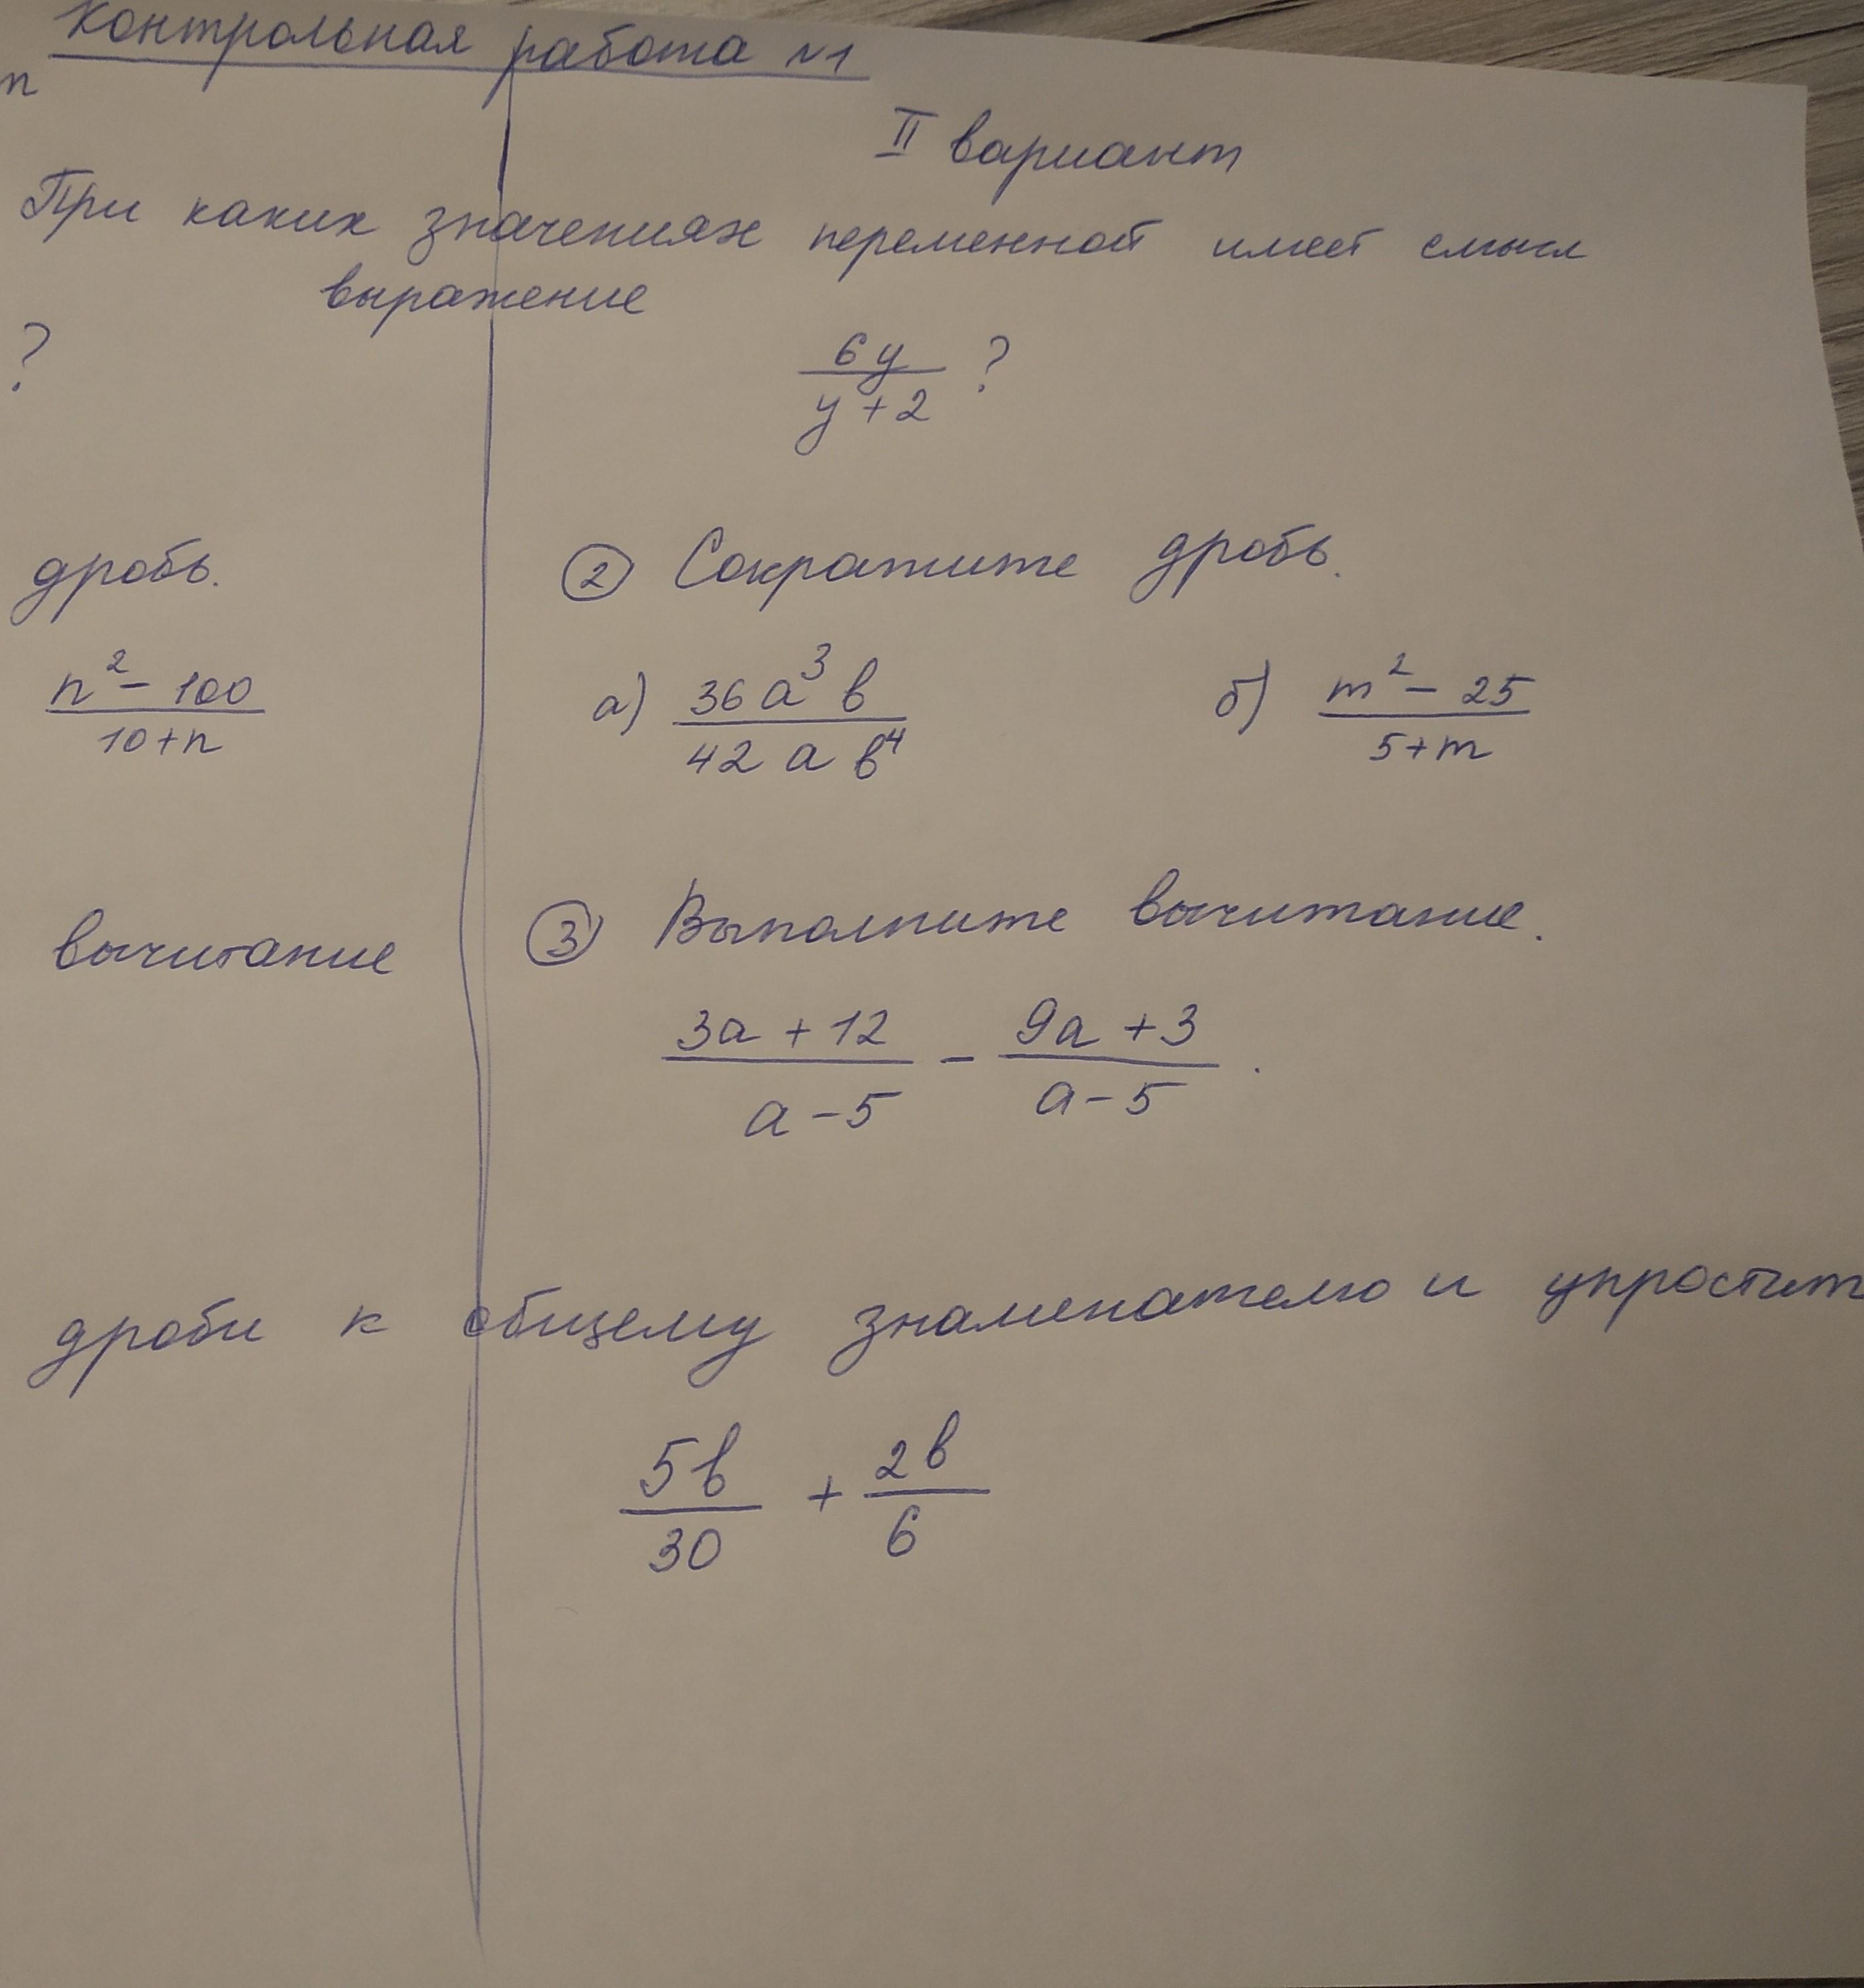 Контрольная работа №1
п
II вариант
При каких значениях переменной имеет смысл
выражение
?
6y
y+2
?
дробь.
② Сократите дробь.
n² - 100
10+n
а) 36a³b
42ab⁴
б) m² - 25
5+m
вычитание
③ Выполните вычитание.
3a+12
a-5
-
9a+3
a-5
.
дроби к общему знаменателю и упростит
5b
30
+
2b
6